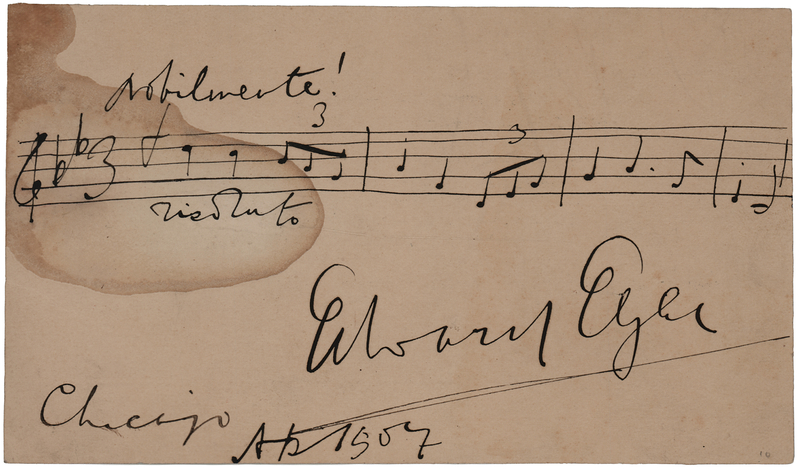 Nobilmente!
3 3
3
risoluto
Edward Elgar
Chicago
Ap 1907